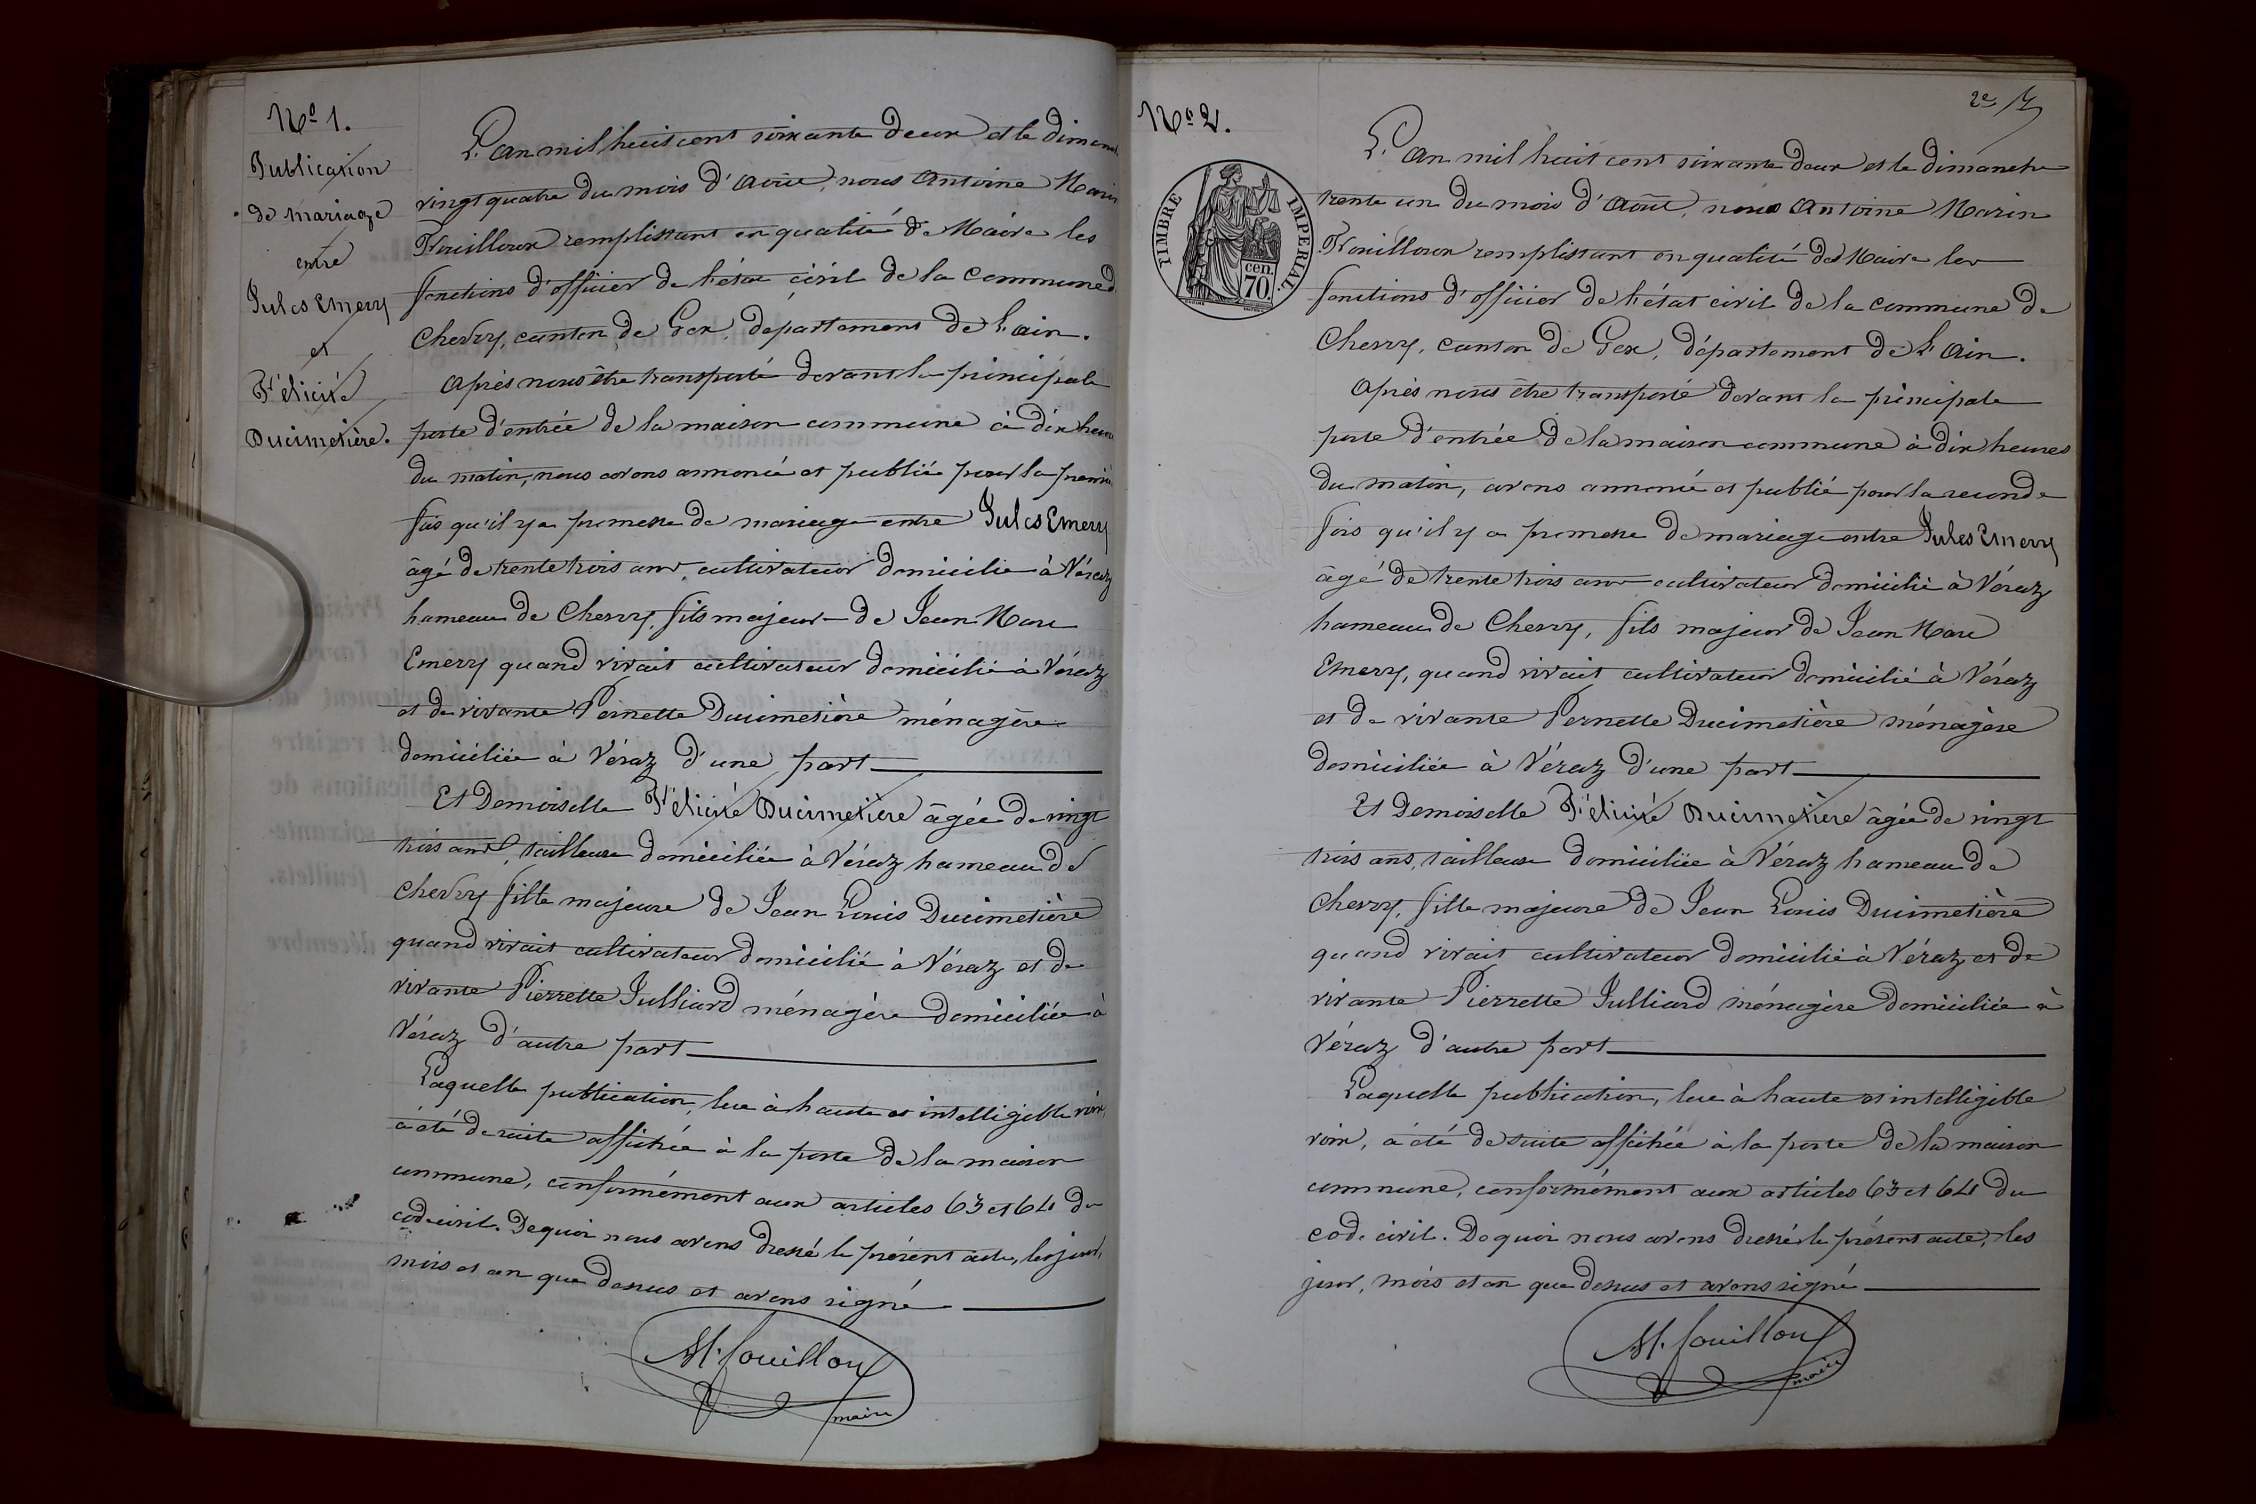 Nº 1.
Publication
de mariage
entre
Jules Emery
et
Félicité
Ducimetière.
L'an mil huit cent soixante deux et le dimanc
vingt quatre du mois d'Août, nous Antoine Marin
Fouilloux remplissant en qualité de Maire les
fonctions d'officier de l'état civil de la commune d
Chevry, canton de Gex, département de l'ain.
Après nous être transporté devant la principale
porte d'entrée de la maison commune à dix heures
du matin, nous avons annoncé et publié pour la premiè
fois qu'il y a promesse de mariage entre Jules Emery
âgé de trente trois ans, cultivateur domicilié à Véraz
hameau de Chevry, fils majeur de Jean Marc
Emery quand vivait cultivateur domicilié à Véraz
et de vivante Pernette Ducimetière ménagère
domiciliée à Véraz d'une part
Et Demoiselle Félicité Ducimetière âgée de vingt
trois ans, tailleuse domiciliée à Véraz hameau de
Chevry fille majeure de Jean Louis Ducimetière
quand vivait cultivateur domicilié à Véraz et de
vivante Pierrette Julliard ménagère domiciliée à
Véraz d'autre part
Laquelle publication, lue à haute et intelligible voix,
a été de suite affichée à la porte de la maison
commune, conformément aux articles 63 et 64 du
code civil. De quoi nous avons dressé le présent acte, les jour,
mois et an que dessus et avons signé
M. fouilloux
maire
2e
Nº 2.
TIMBRE IMPERIAL.
cen.
70.
L'an mil huit cent soixante deux et le dimanche
trente un du mois d'Août, nous Antoine Marin
Fouilloux remplissant en qualité de Maire les
fonctions d'officier de l'état civil de la commune de
Chevry, canton de Gex, département de l'Ain.
Après nous être transporté devant la principale
porte d'entrée de la maison commune à dix heures
du matin, avons annoncé et publié pour la seconde
fois qu'il y a promesse de mariage entre Jules Emery
âgé de trente trois ans cultivateur domicilié à Véraz
hameau de Chevry, fils majeur de Jean Marc
Emery, quand vivait cultivateur domicilié à Véraz
et de vivante Pernette Ducimetière ménagère
domiciliée à Véraz d'une part
Et Demoiselle Félicité Ducimetière âgée de vingt
trois ans, tailleuse domiciliée à Véraz hameau de
Chevry, fille majeure de Jean Louis Ducimetière
quand vivait cultivateur domicilié à Véraz et de
vivante Pierrette Julliard ménagère domiciliée à
Véraz d'autre part
Laquelle publication, lue à haute et intelligible
voix, a été de suite affichée à la porte de la maison
commune, conformément aux articles 63 et 64 du
code civil. De quoi nous avons dressé le présent acte, les
jour, mois et an que dessus et avons signé
M. fouilloux
maire